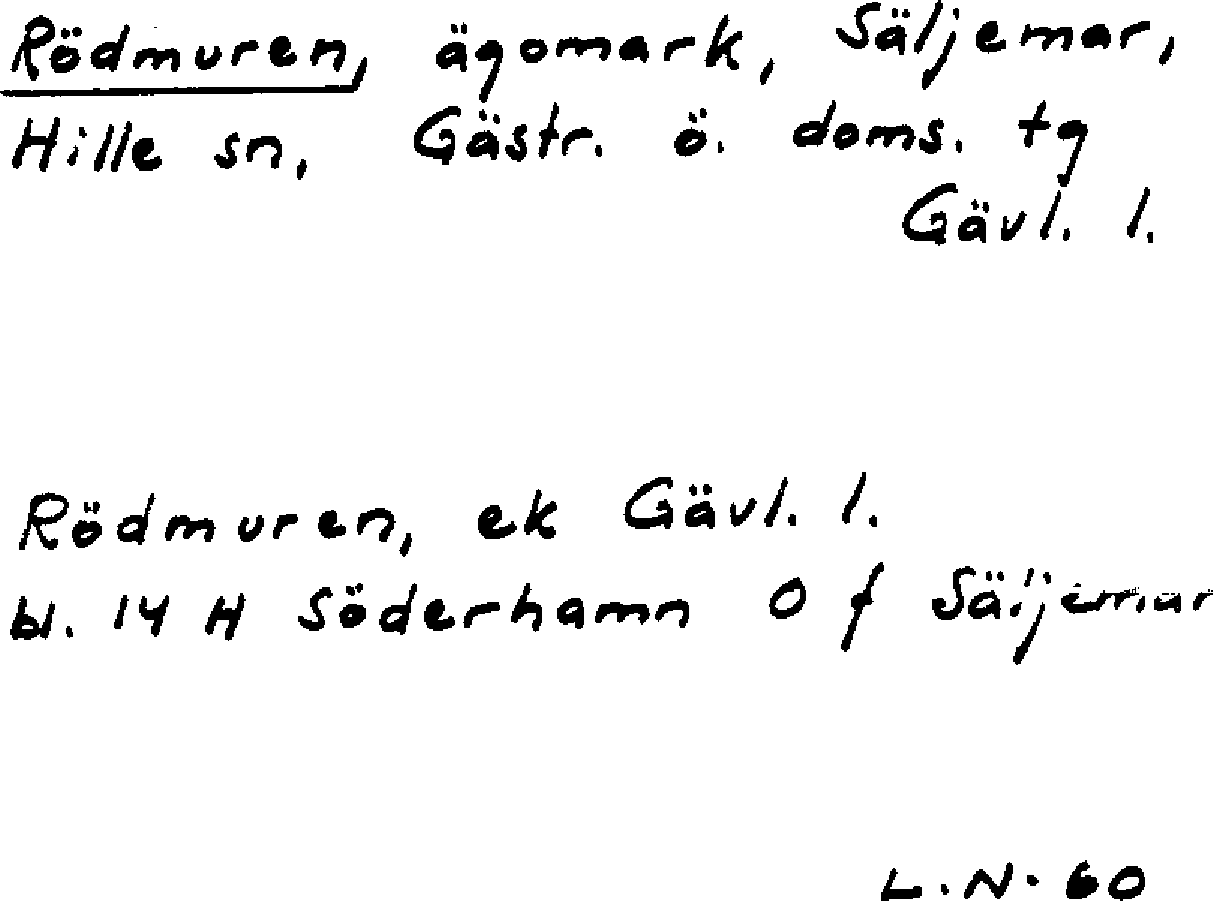 Rödmuren, ägomark, Säljemar,
Hille sn, Gästr. ö. doms. tg
Gävl. l.
Rödmuren, ek Gävl. l.
bl. 14 H Söderhamn O f Säljemar
L.N. 60